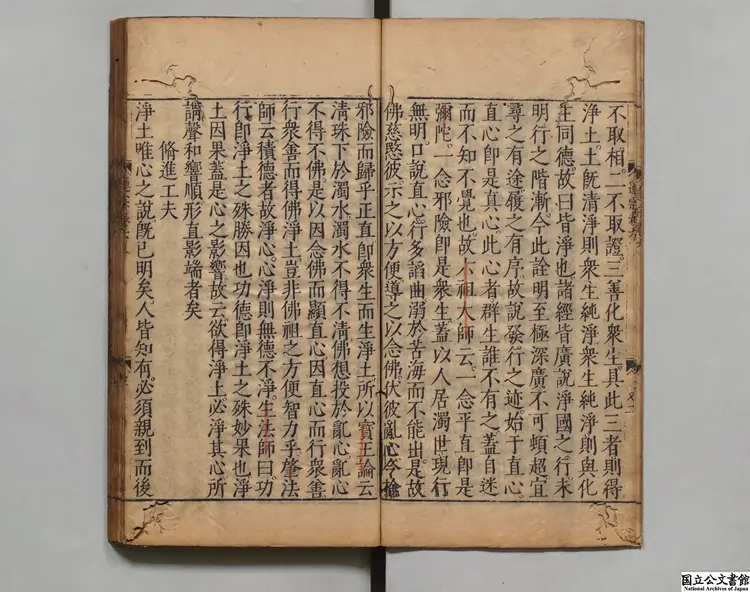 不取相二不取證三善化衆生具此三者則得
浄土土旣清淨則衆生純淨衆生純淨則與化
生同德故曰皆淨也諸經皆廣說淨國之行未
明行之階漸今此詮明至極深廣不可頓超宜
尋之有途履之有序故說發行之迹始于直心
直心卽是真心此心者群生誰不有之蓋自迷
而不知不覺也故六祖大師云一念平直卽是
彌陀一念邪險卽是衆生蓋以人居濁世現行
無明口說直心行多謟曲溺於苦海而不能出是故
佛慈愍彼示之以方便導之以念佛伏彼亂心令捨
邪險而歸乎正直卽衆生而生淨土所以寳王論云
清珠下於濁水濁水不得不淸佛想投於亂心亂心
不得不佛是以因念佛而顯直心因直心而行衆善
行衆善而得佛淨土豈非佛祖之方便智力乎肇法
師云積德者故淨心心淨則無德不淨生法師曰功
行卽淨土之殊勝因也功德卽淨土之殊妙果也淨
土因果蓋是心之影響故云欲得淨土必淨其心所
謂聲和響順形直影端者矣
脩進工夫
淨土唯心之說旣已明矣人皆知有必須親到而後
国立公文書館
National Archives of Japan